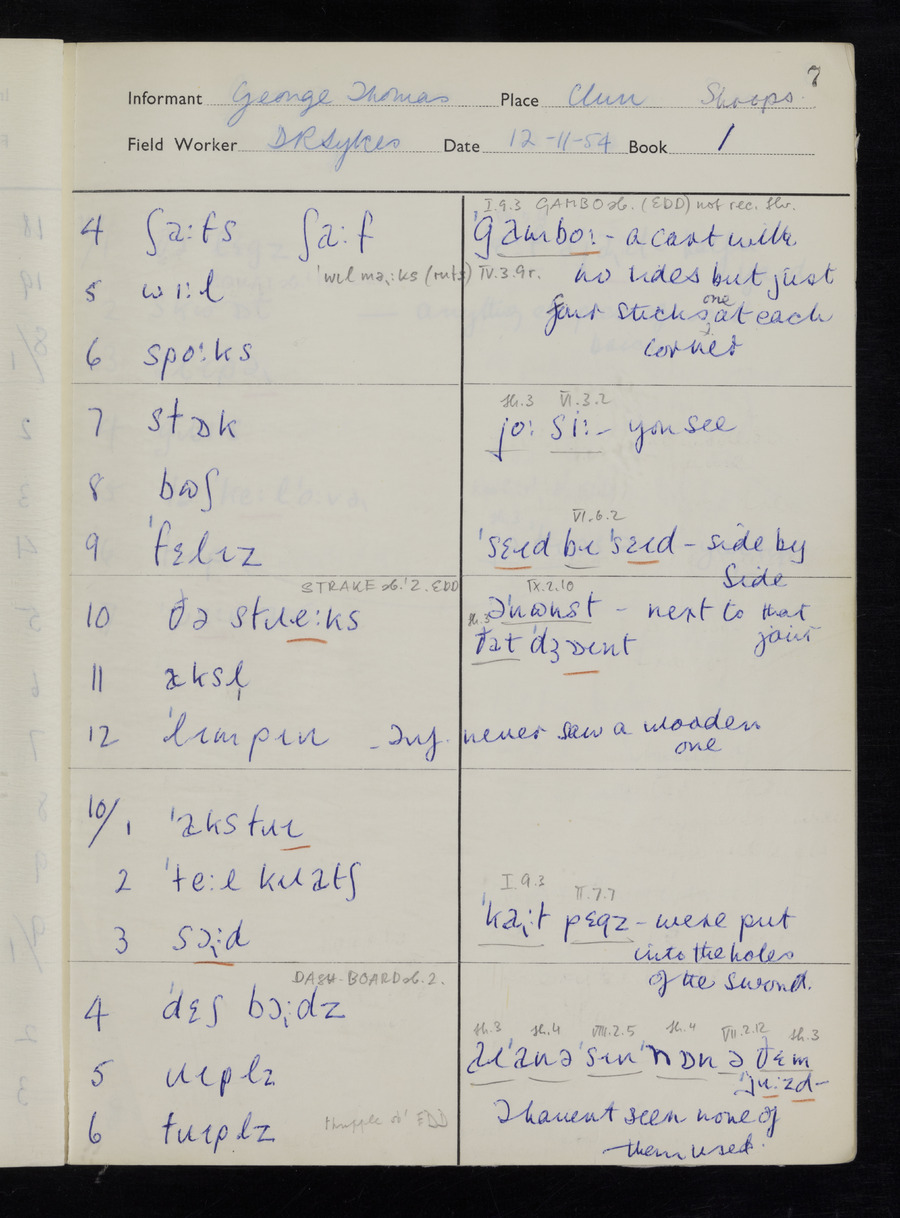 7
Informant George Thomas Place Clun Shrops.
Field Worker D R Sykes Date 12-11-54 Book 1
I.9.3 GAMBO sb. (EDD) not rec. Shr.
4 ʃaːfts ʃaːf
ˈgamboː - a cart with
ˈwɪl maːks (ruts) IV.3.9r. no sides but just
5 wiːl
four sticks, one at each
6 spoːks corner
sh.3 VI.3.2
7 stɒk joː siː - you see
8 bʊʃ
VI.6.2
9 ˈfɛlɪz ˈsɛɪd bɪ ˈsɛɪd - side by
side
STRAKE sb.'2. EDD IX.2.10
10 ðə stɹeːks əˈnɪnst - next to that
sh.3 ðat ˈdʒɒɪnt joint
11 aksl̩
12 ˈlɪmpɪn - Inf. never saw a wooden
one
10/1 ˈakstɹɪ
2 ˈteːl kɹatʃ
I.9.3 II.7.7
ˈkaːt pɛgz - were put
3 sɔːd into the holes
DASH-BOARD sb. 2. of the sword.
4 ˈdɛʃ bɔːdz
sh.3 sh.4 VIII.2.5 sh.4 VII.2.12 sh.3
5 ɹɪplz aɪ ˈanə ˈsɪn ˈnɒn ə ðɛm
ˈjuːzd -
6 tɹɪplz thripple sb' EDD I havent seen none of
them used.